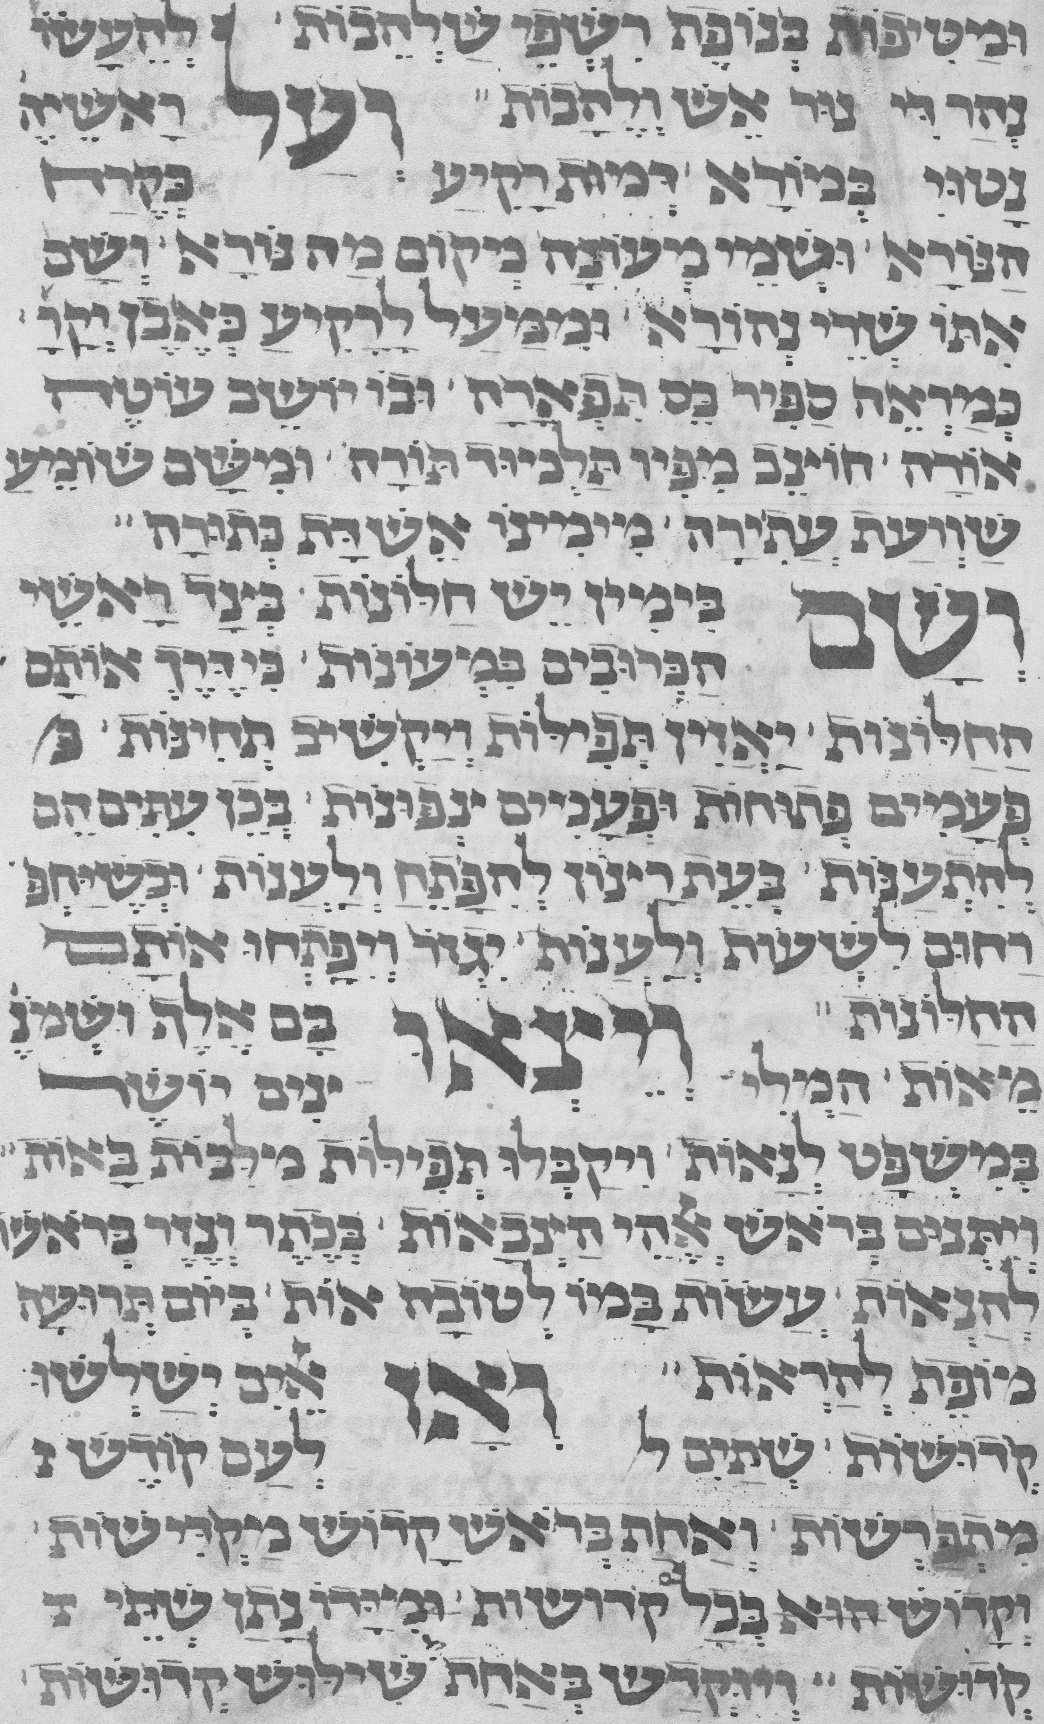 וּמַטִיפוֹת כְּנוֹפֶת רִשְׁפֵּי שַׁלְהֵבוֹת׳ לְהֵעָשׂוֹ
נְהַר דִּי נוּר אֵשׁ וְלֶהָבוֹת׃ וְעַל רָאשֵׁיהֶ
נָטוּי בְּמוֹרָא׳ דְּמוּת רָקִיעַ כְּקֶרַח
הַנּוֹרָא׳ וּשְׁמֵי מְעוֹנָה מְקוֹם מַה נּוֹרָא׳ וְשָׁב
אִתּוֹ שְׁרֵי נְהוֹרָא׳ וּמִמַּעַל לָרָקִיעַ כְּאֶבֶן יְקָרָ׳
כְּמַרְאֵה סַפִּיר כֵּס תִּפְאָרָה׳ וּבוֹ יוֹשֵׁב עוֹטֶה
אוֹרָה׳ חוֹצֵב מִפִּיו תַּלְמוּד תּוֹרָה׳ וּמִשָּׁם שׁוֹמֵעַ
שַׁוְועַת עֲתִירָה׳ מִימִינוֹ אֵשׁ דָּת כְּתוּרָה׃
וְשָׁם בְּיָמִין יֵשׁ חַלּוֹנוֹת׳ כְּנֶגֶד רָאשֵׁי
הַכְּרוּבִים בִּמְעוֹנוֹת׳ כִּי דֶרֶךְ אוֹתָם
הַחַלּוֹנוֹת׳ יַאֲזִין תְּפִילּוֹת וְיַקְשִׁיב תְּחִינּוֹת׳ בּ
פְּעָמִים פְּתוּחוֹת וּפְעָמִים צְפוּנוֹת׳ בְּכֵן עִתִּים הֵם
לְהִתְעַנּוֹת׳ בְּעֵת רִצּוֹן לְהִפָּתַח וְלַעֲנוֹת׳ וּכְשֶׁיַּחְפּ
רַחוּם לִשְׁעוֹת וְלַעֲנוֹת׳ יִגְזֹר וְיִפָּתְחוּ אוֹתָם
הַחַלּוֹנוֹת׃ וְיֵצְאוּ בָּם אֶלֶף וּשְׁמֹנֶ
מֵאוֹת׳ הַמְלִי צִים יוֹשֶׁר
בְּמִשְׁפָּט לְנָאוֹת׳ וִיקַבְּלוּ תְּפִילּוֹת מִלִּבּוֹת בָּאוֹת׃
וְיִתְּנוּם בְּרֹאשׁ אֱלֹהֵי הַצְּבָאוֹת׳ כְּכֶתֶר וְנֵזֶר בְּרֹאשׁוֹ
לְהֵרָאוֹת׳ עֲשׂוֹת בָּמוֹ לְטוֹבָה אוֹת׳ בְּיוֹם תְּרוּעָה
מוֹפֵת לְהַרְאוֹת׃ וְאָז אֵלִים יְשַׁלְּשׁוּ
קְדוּשּׁוֹת׳ שְׁתַּיִם ל לְעַם קוֹדֶשׁ
מִתְפָּרְשׁוֹת׳ וְאַחַת בְּרֹאשׁ קָדוֹשׁ מְקַדִּישׁוֹת׳
וְקָדוֹשׁ הוּא בְּכָל קְדוּשּׁוֹת׳ וּמִיָּדוֹ נָתַן שְׁתֵּי
קְדוּשּׁוֹת׃ וְיוּקְדַּשׁ בְּאַחַת שִׁילּוּשׁ קְדוּשּׁוֹת׳